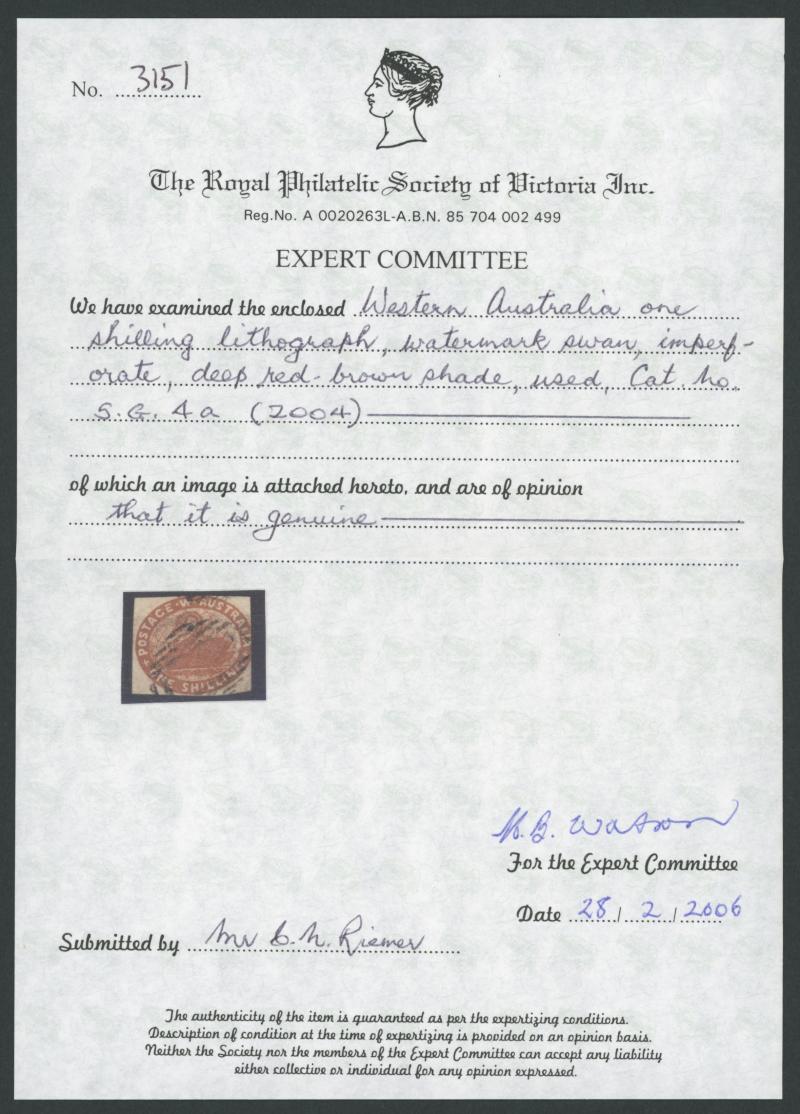 No. 3151
The Royal Philatelic Society of Victoria Inc.
Reg.No. A 0020263L-A.B.N. 85 704 002 499
EXPERT COMMITTEE
We have examined the enclosed Western Australia one
shilling lithograph, watermark swan, imperf-
orate, deep red-brown shade, used, Cat. No.
S.G. 4a (2004)
of which an image is attached hereto, and are of opinion
that it is genuine
POSTAGE·W·AUSTRALIA
ONE SHILLING
Watson
For the Expert Committee
Date 28/2/2006
Submitted by Mr C. N. Riemer
The authenticity of the item is guaranteed as per the expertizing conditions.
Description of condition at the time of expertizing is provided on an opinion basis.
Neither the Society nor the members of the Expert Committee can accept any liability
either collective or individual for any opinion expressed.